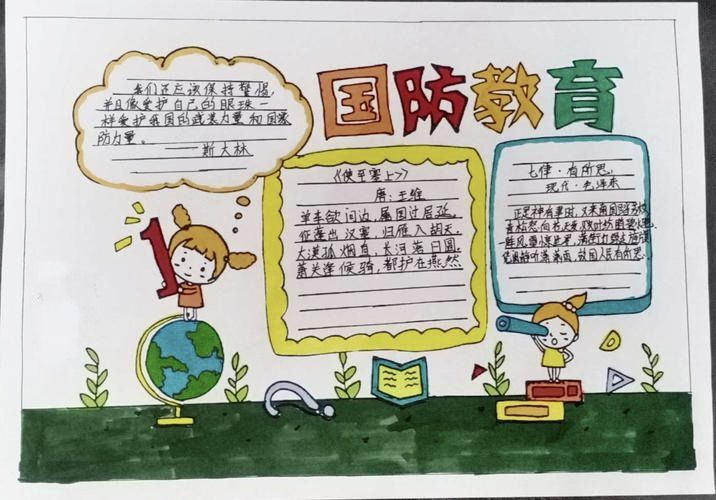 国防教育
我们还应该保持警惕,
并且像爱护自己的眼珠一
样爱护我国的武装力量和国家
防力量。
——斯大林
《使至塞上》
唐:王维
单车欲问边,属国过居延。
征蓬出汉塞,归雁入胡天。
大漠孤烟直,长河落日圆。
萧关逢候骑,都护在燕然
七律·有所思。
现代·毛泽东
正是神都有事时,又来南国踏芳枝
青松怒向苍天发,败叶纷随碧水
阵风雷惊世界,满街红绿走旌旗
凭阑静听潇潇雨,故国人民有所思。
1